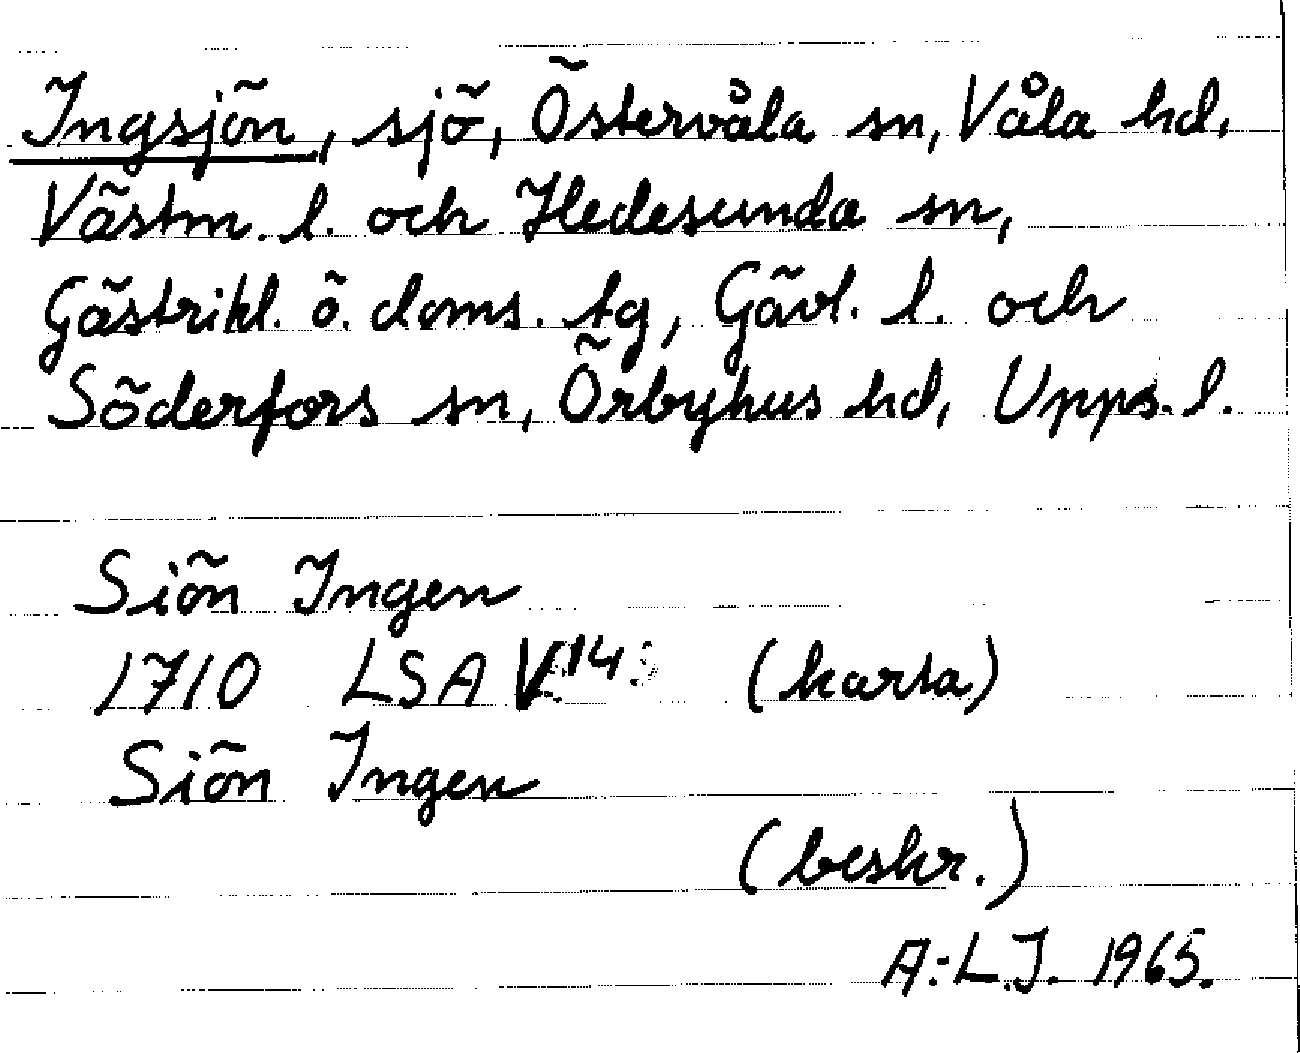 Ingsjön, sjö, Östervåla sn, Våla hd,
Västm. l. och Hedesunda sn,
Gästrikl. ö. doms. tg, Gävl. l. och
Söderfors sn, Örbyhus hd, Upps. l.
Siön Ingen
1710 LSA V 14 (karta)
Siön Ingen
(beskr.)
A:L.J. 1965.